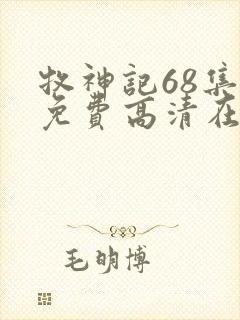 牧神記68集
免費高清在
毛明博